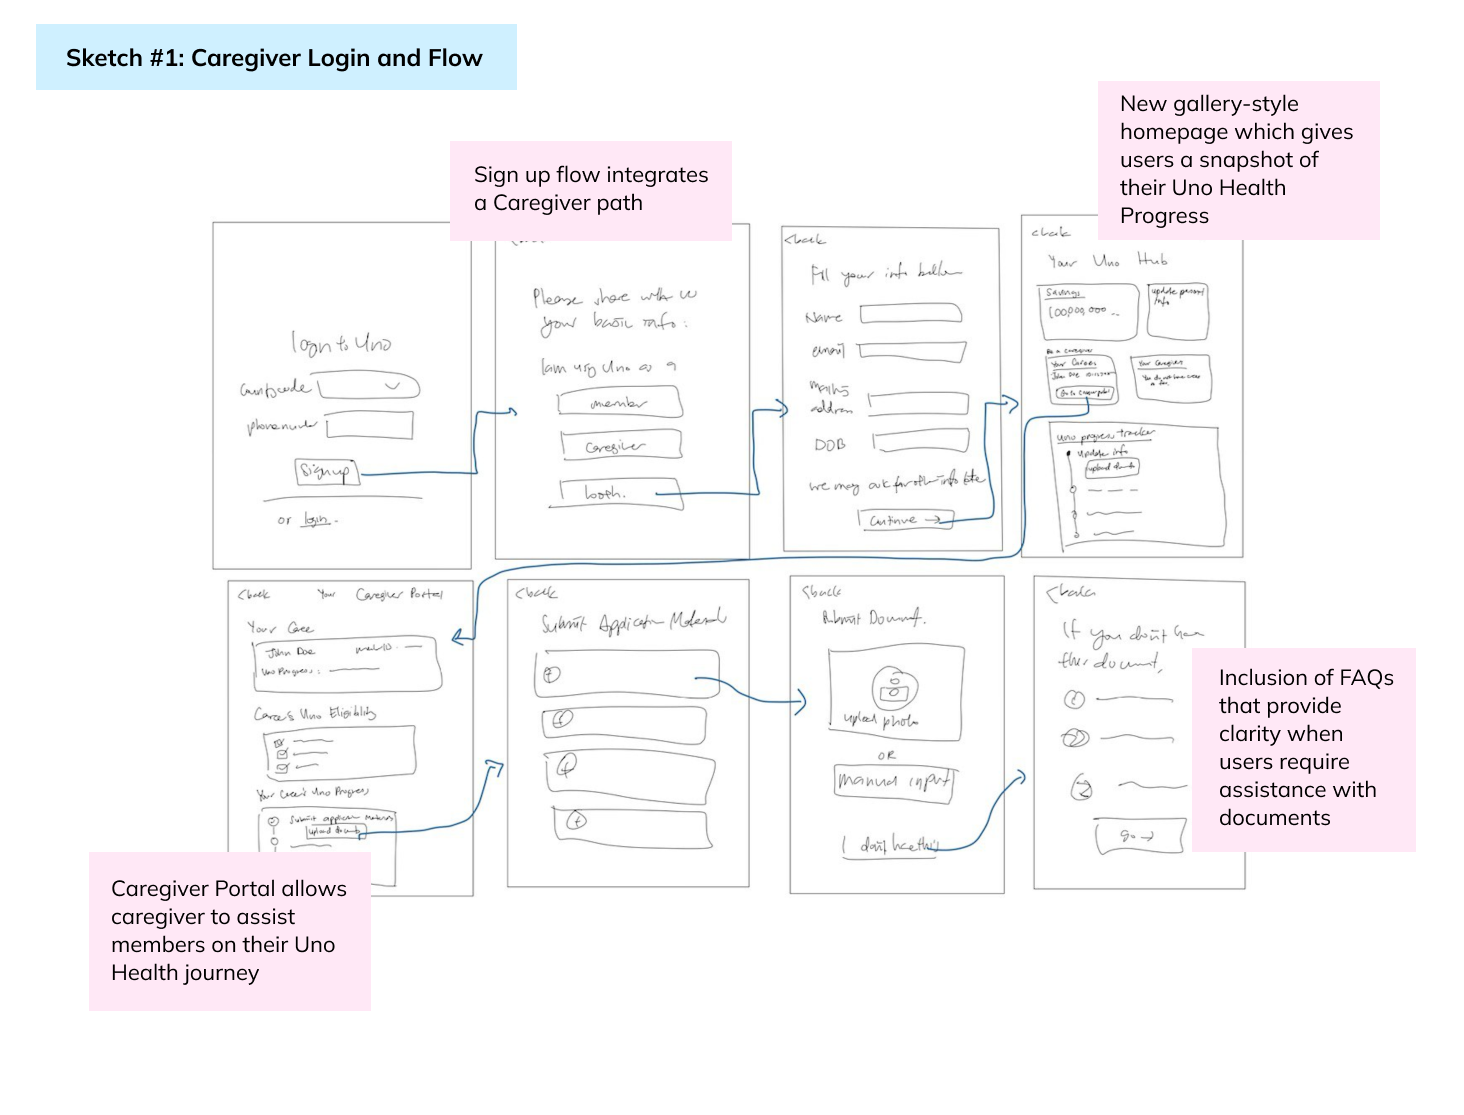 Sketch #1: Caregiver Login and Flow
Sign up flow integrates
a Caregiver path
New gallery-style
homepage which gives
users a snapshot of
their Uno Health
Progress
login to Uno
phone number
Sign up
or login.
Please share with us
your basic info:
I am using Uno as a
member
Caregiver
both.
<back
Fill your info below
Name
email
mailing
address
DOB
we may ask for other info later
Continue →
<back
Your Uno Hub
Savings
update personal
info
Your Caree
John Doe
Your Caregiver
Uno progress tracker
update info
<back Your Caregiver Portal
Your Caree
John Doe
Uno Progress:
Caree's Uno Eligibility
Your Caree's Uno Progress
Submit application materials
<back
Submit Application Materials
<back
Submit Document.
upload photo
OR
manual input
I don't have this
<back
If you don't have
this document,
1
2
go →
Inclusion of FAQs
that provide
clarity when
users require
assistance with
documents
Caregiver Portal allows
caregiver to assist
members on their Uno
Health journey